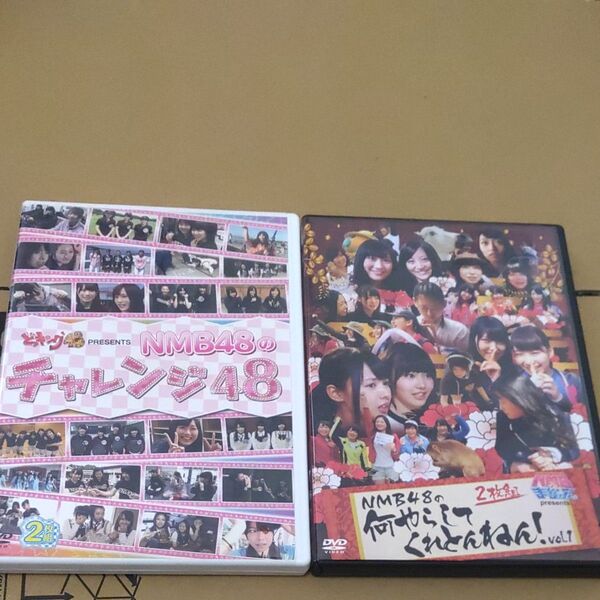 どっキング48
PRESENTS
NMB48の
チャレンジ48
2枚組
NMB48の
2枚組
何やらしてくれとんねん! vol.1
presents
DVD
VIDEO